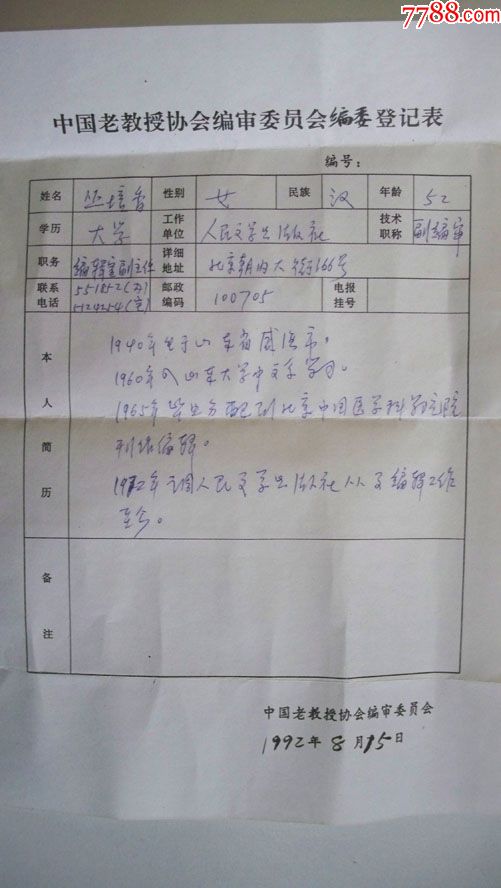 7788.com
中国老教授协会编审委员会编委登记表
编号：
姓名 丛培香 性别 女 民族 汉 年龄 52
学历 大学 工作单位 人民文学出版社 技术职称 副编审
职务 编辑室副主任 详细地址 北京朝内大街166号
联系电话 邮政编码 100705 电报挂号
本人简历
1940年生于山东省威海市。
1960年入山东大学中文系学习。
1965年毕业分配到北京中国医学科学院
科编辑。
1972年调人民文学出版社从文编辑工作
至今。
备注
中国老教授协会编审委员会
1992年8月15日